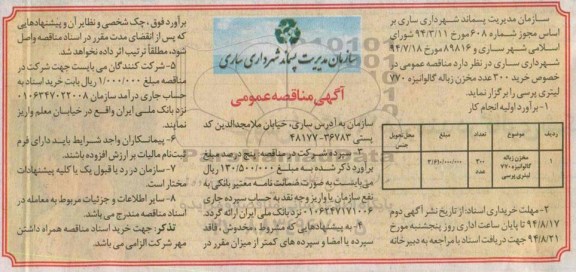 سازمان مدیریت پسماند شهرداری ساری
آگهی مناقصه عمومی
سازمان مدیریت پسماند شهرداری ساری بر
اساس مجوز شماره ۶۰۸ مورخ ۹۴/۳/۱۱ شورای
اسلامی شهر ساری و ۸۹۸۱۶ مورخ ۹۴/۷/۱۸
شهرداری ساری در نظر دارد مناقصه عمومی در
خصوص خرید ۳۰۰ عدد مخزن زباله گالوانیزه ۷۷۰
لیتری پرسی را برگزار نماید.
۱- برآورد اولیه انجام کار
ردیف موضوع تعداد مبلغ محل تحویل جنس
۱ مخزن زباله گالوانیزه ۷۷۰ لیتری پرسی ۳۰۰ عدد
۲- مهلت خریداری اسناد: از تاریخ نشر آگهی دوم
۹۴/۸/۱۷ تا پایان ساعت اداری روز پنجشنبه مورخ
۹۴/۸/۲۱ جهت دریافت اسناد با مراجعه به دبیرخانه
سازمان به آدرس ساری، خیابان ملامجدالدین کد
پستی ۳۶۷۸۳-۴۸۱۷۷
۳- سپرده شرکت در مناقصه: پنج درصد مبلغ
برآورد ذکر شده به مبلغ ۱۳۰/۵۰۰/۰۰۰ ریال
می‌بایست به صورت ضمانت نامه معتبر بانکی به
نفع سازمان یا واریز وجه نقد به حساب سپرده جاری
۰۱۰۶۲۴۷۱۷۱۰۰۶ نزد بانک ملی ایران ارائه گردد.
۴- به پیشنهادهایی که مشروط، مخدوش، فاقد
سپرده یا امضا و سپرده های کمتر از میزان مقرر در
برآورد فوق، چک شخصی و نظایر آن و پیشنهادهایی
که پس از انقضای مدت مقرر در اسناد مناقصه واصل
شود، مطلقاً ترتیب اثر داده نخواهد شد.
۵- شرکت کنندگان می بایست جهت شرکت در
مناقصه مبلغ ۱/۰۰۰/۰۰۰ ریال بابت خرید اسناد به
حساب جاری درآمد سازمان ۰۱۰۶۳۴۷۰۲۲۰۰۸
نزد بانک ملی ایران واقع در خیابان معلم واریز
نمایند.
۶- پیمانکاران واجد شرایط باید دارای فرم
ثبت‌نام مالیات بر ارزش افزوده باشند.
۷- سازمان در رد یا قبول یک یا کلیه پیشنهادات
مختار است.
۸- سایر اطلاعات و جزئیات مربوط به معامله در
اسناد مناقصه مندرج می باشد.
تذکر: جهت خرید اسناد مناقصه همراه داشتن
مهر شرکت الزامی می باشد.